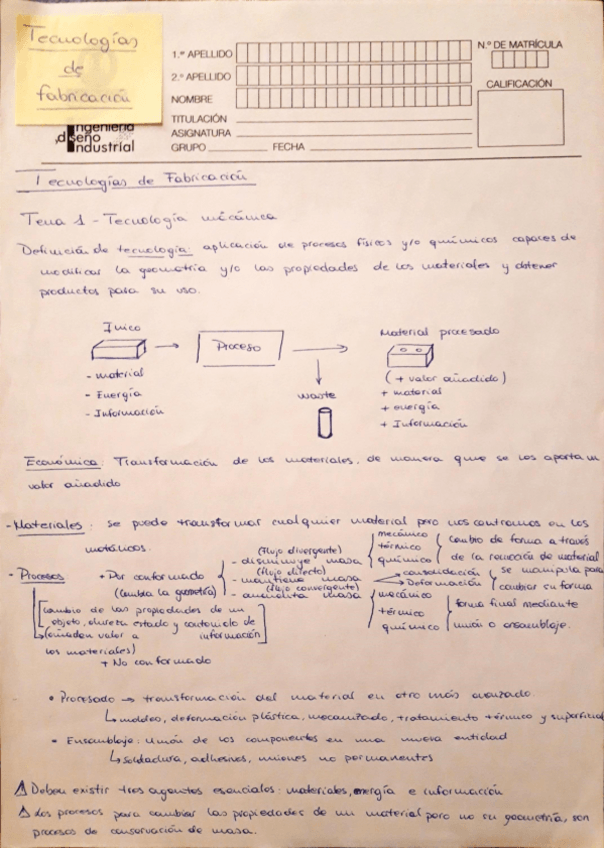 Tecnologías
de
fabricación
1.er APELLIDO
2.º APELLIDO
NOMBRE
TITULACIÓN
ASIGNATURA
GRUPO FECHA
N.º DE MATRÍCULA
CALIFICACIÓN
Ingeniería
diseño
industrial
Tecnologías de Fabricación
Tema 1 - Tecnología mécánica
Definición de tecnología: aplicación de procesos físicos y/o químicos capaces de
modificar la geometría y/o las propiedades de los materiales y obtener
productos para su uso.
Inicio
Proceso
Material procesado
- material
- Energía
- Información
waste
(+ valor añadido)
+ material
+ energía
+ Información
Económica: Transformación de los materiales, de manera que se les aporta un
valor añadido
- Materiales: se puede transformar cualquier material pero nos centramos en los
metálicos.
- Procesos
+ Por conformado
(cambia la geometría)
(flujo divergente)
- disminuye masa
(flujo directo)
- mantiene masa
(flujo convergente)
- aumenta masa
mecánico
térmico
químico
cambio de forma a través
de la remoción de material
consolidación
Deformación
se manipula para
cambiar su forma
mecánico
térmico
químico
forma final mediante
unión o ensamblaje.
cambio de las propiedades de un
objeto, dureza estado y contenido de
información
(añaden valor a
los materiales)
+ No conformado
• Procesado → transformación del material en otro más avanzado.
↳ moldeo, deformación plástica, mecanizado, tratamiento térmico y superficial
• Ensamblaje: Unión de los componentes en una nueva entidad
↳ soldadura, adhesivos, uniones no permanentes
⚠ Deben existir tres agentes esenciales: materiales, energía e información
⚠ Los procesos para cambiar las propiedades de un material pero no su geometría, son
procesos de conservación de masa.